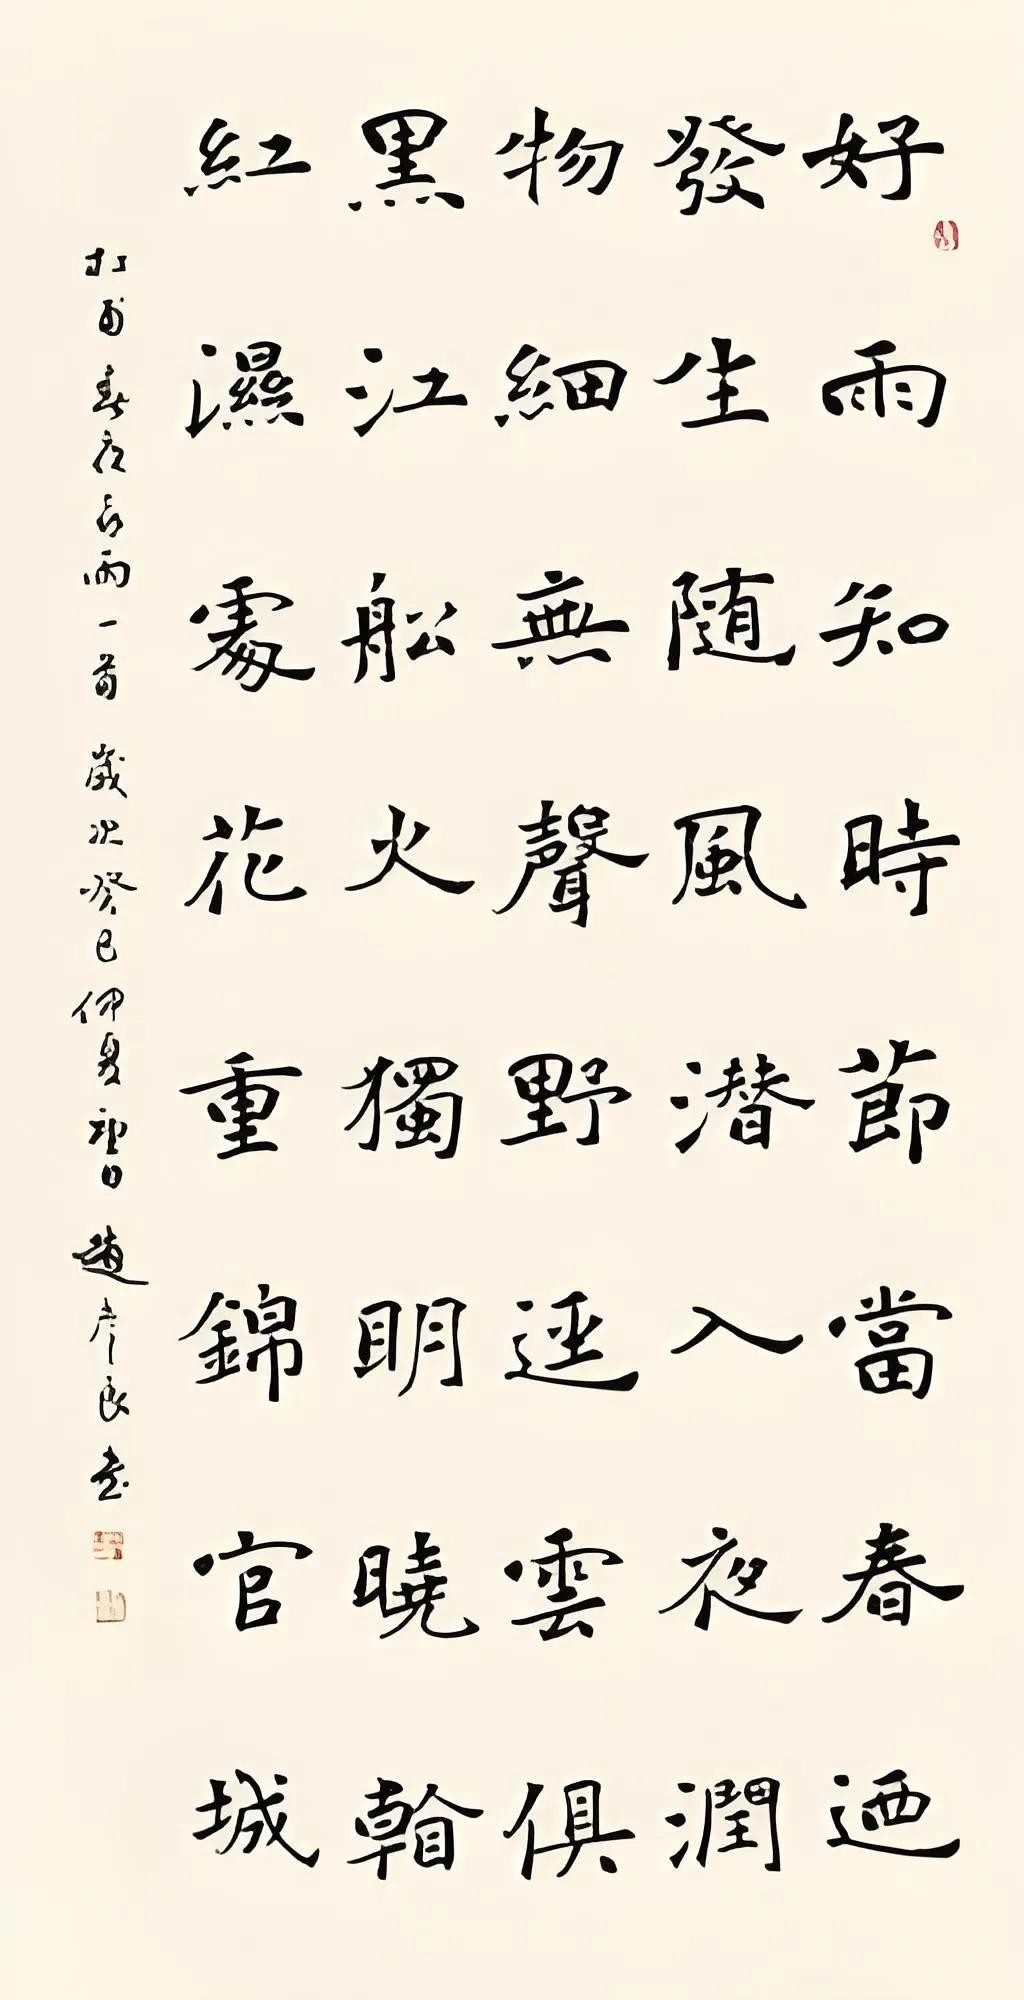 好雨知時節當春迺
發生随風潜入夜潤
物細無聲野逕雲俱
黑江船火獨明曉看
紅濕處花重錦官城
杜甫春夜喜雨一首 歲次癸巳仲夏 趙彦良書